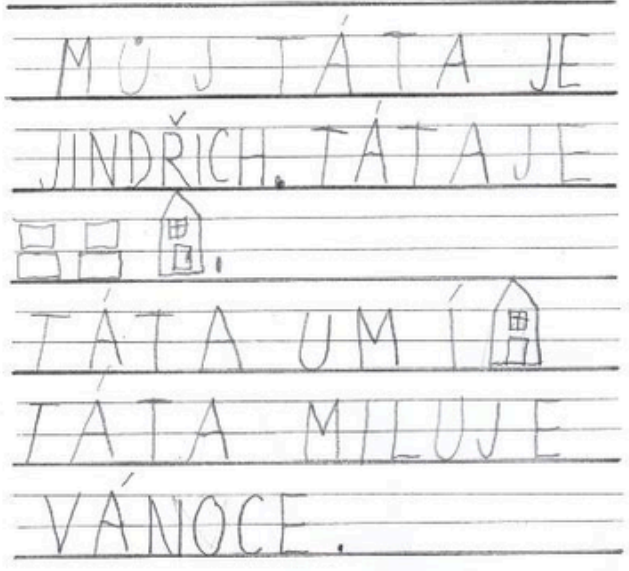 MŮJ TÁTA JE
JINDŘICH. TÁTA JE
.
TÁTA UMÍ
TÁTA MILUJE
VÁNOCE.